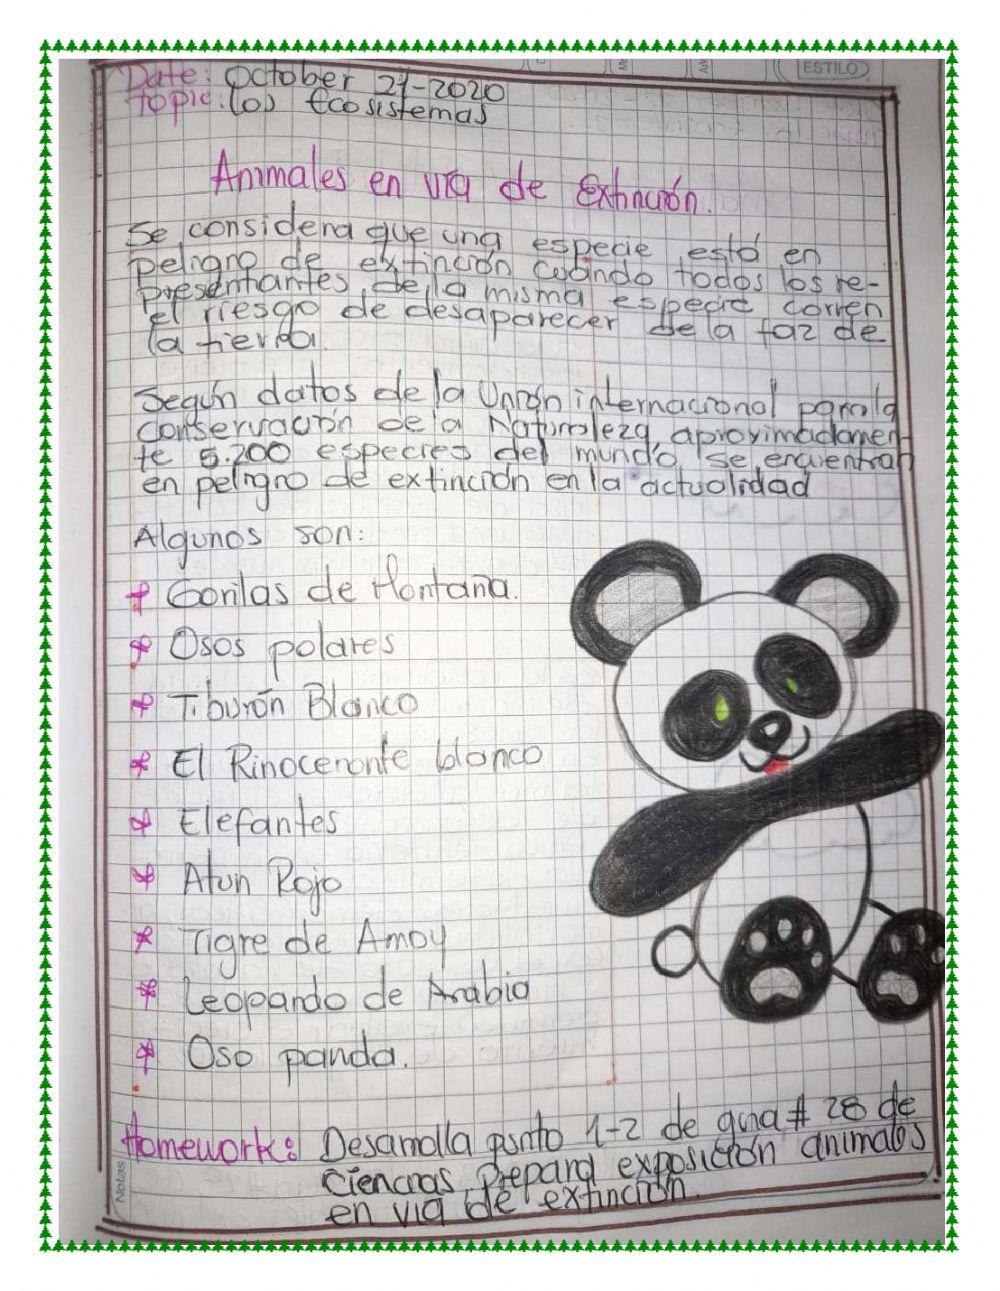 ESTILO
Date: October 21-2020
Topic: los Ecosistemas
Animales en vía de Extinción.
Se considera que una especie está en
peligro de extinción cuando todos los re-
presentantes de la misma especie corren
el riesgo de desaparecer de la faz de
la tierra.
Según datos de la Unión internacional para la
conservación de la Naturaleza, aproximadamen-
te 5.200 especies del mundo, se encuentran
en peligro de extinción en la actualidad
Algunos son:
* Gorilas de Montaña.
* Osos polares
* Tiburón Blanco
* El Rinoceronte blanco
* Elefantes
* Atun Rojo
* Tigre de Amoy
* Leopardo de Arabia
* Oso panda.
Homework: Desarrolla punto 1-2 de guia # 28 de
Ciencias, Preparar exposición animales
en via de extinción.
Notas